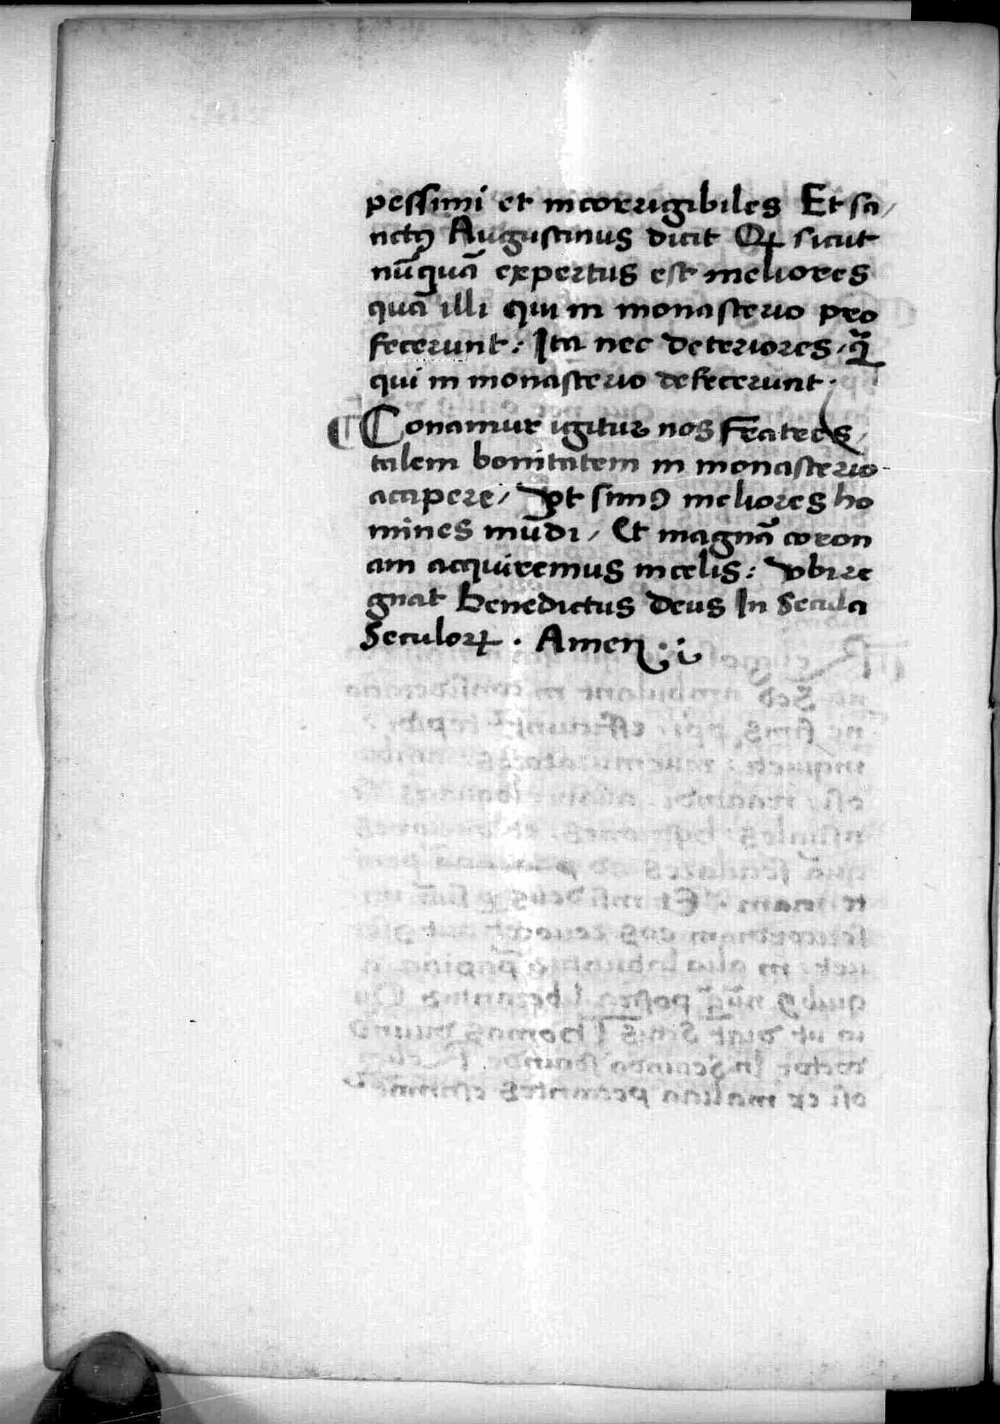 pessimi et incorrigibiles Et sa/
nctꝰ Augustinus dicit Qꝫ sicut
nūquā expertus est meliores
quā illi qui in monasterio pro
fecerunt: Ita nec deteriores / qͣ
qui in monasterio defecerunt ·
¶ Conamur igitur nos Fratres /
talem bonitatem in monasterio
accipere / Vt simꝰ meliores ho
mines mūdi / Et magnā coron
am acquiremus in celis: Vbi re
gnat benedictus deus In Secula
Seculoꝝ · Amen ·: